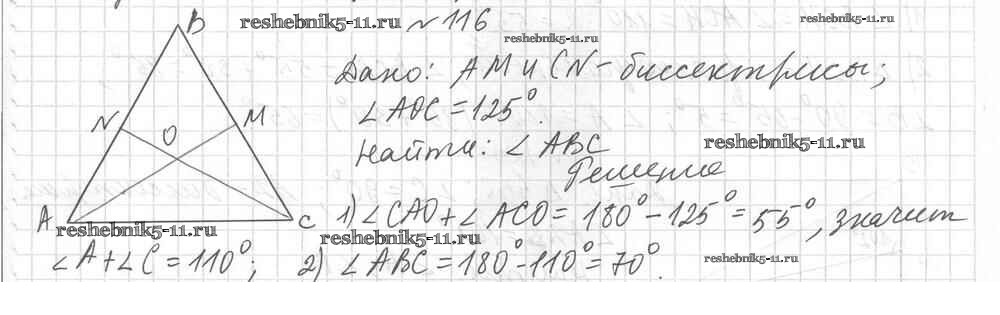 B
reshebnik5-11.ru № 116
reshebnik5-11.ru
reshebnik5-11.ru
Дано: AM и CN - биссектрисы;
∠AOC = 125°.
N O M
reshebnik5-11.ru
Найти: ∠ABC
Решение
A C 1) ∠CAO + ∠ACO = 180° - 125° = 55°, значит
reshebnik5-11.ru
reshebnik5-11.ru
∠A + ∠C = 110°; 2) ∠ABC = 180° - 110° = 70°.
reshebnik5-11.ru